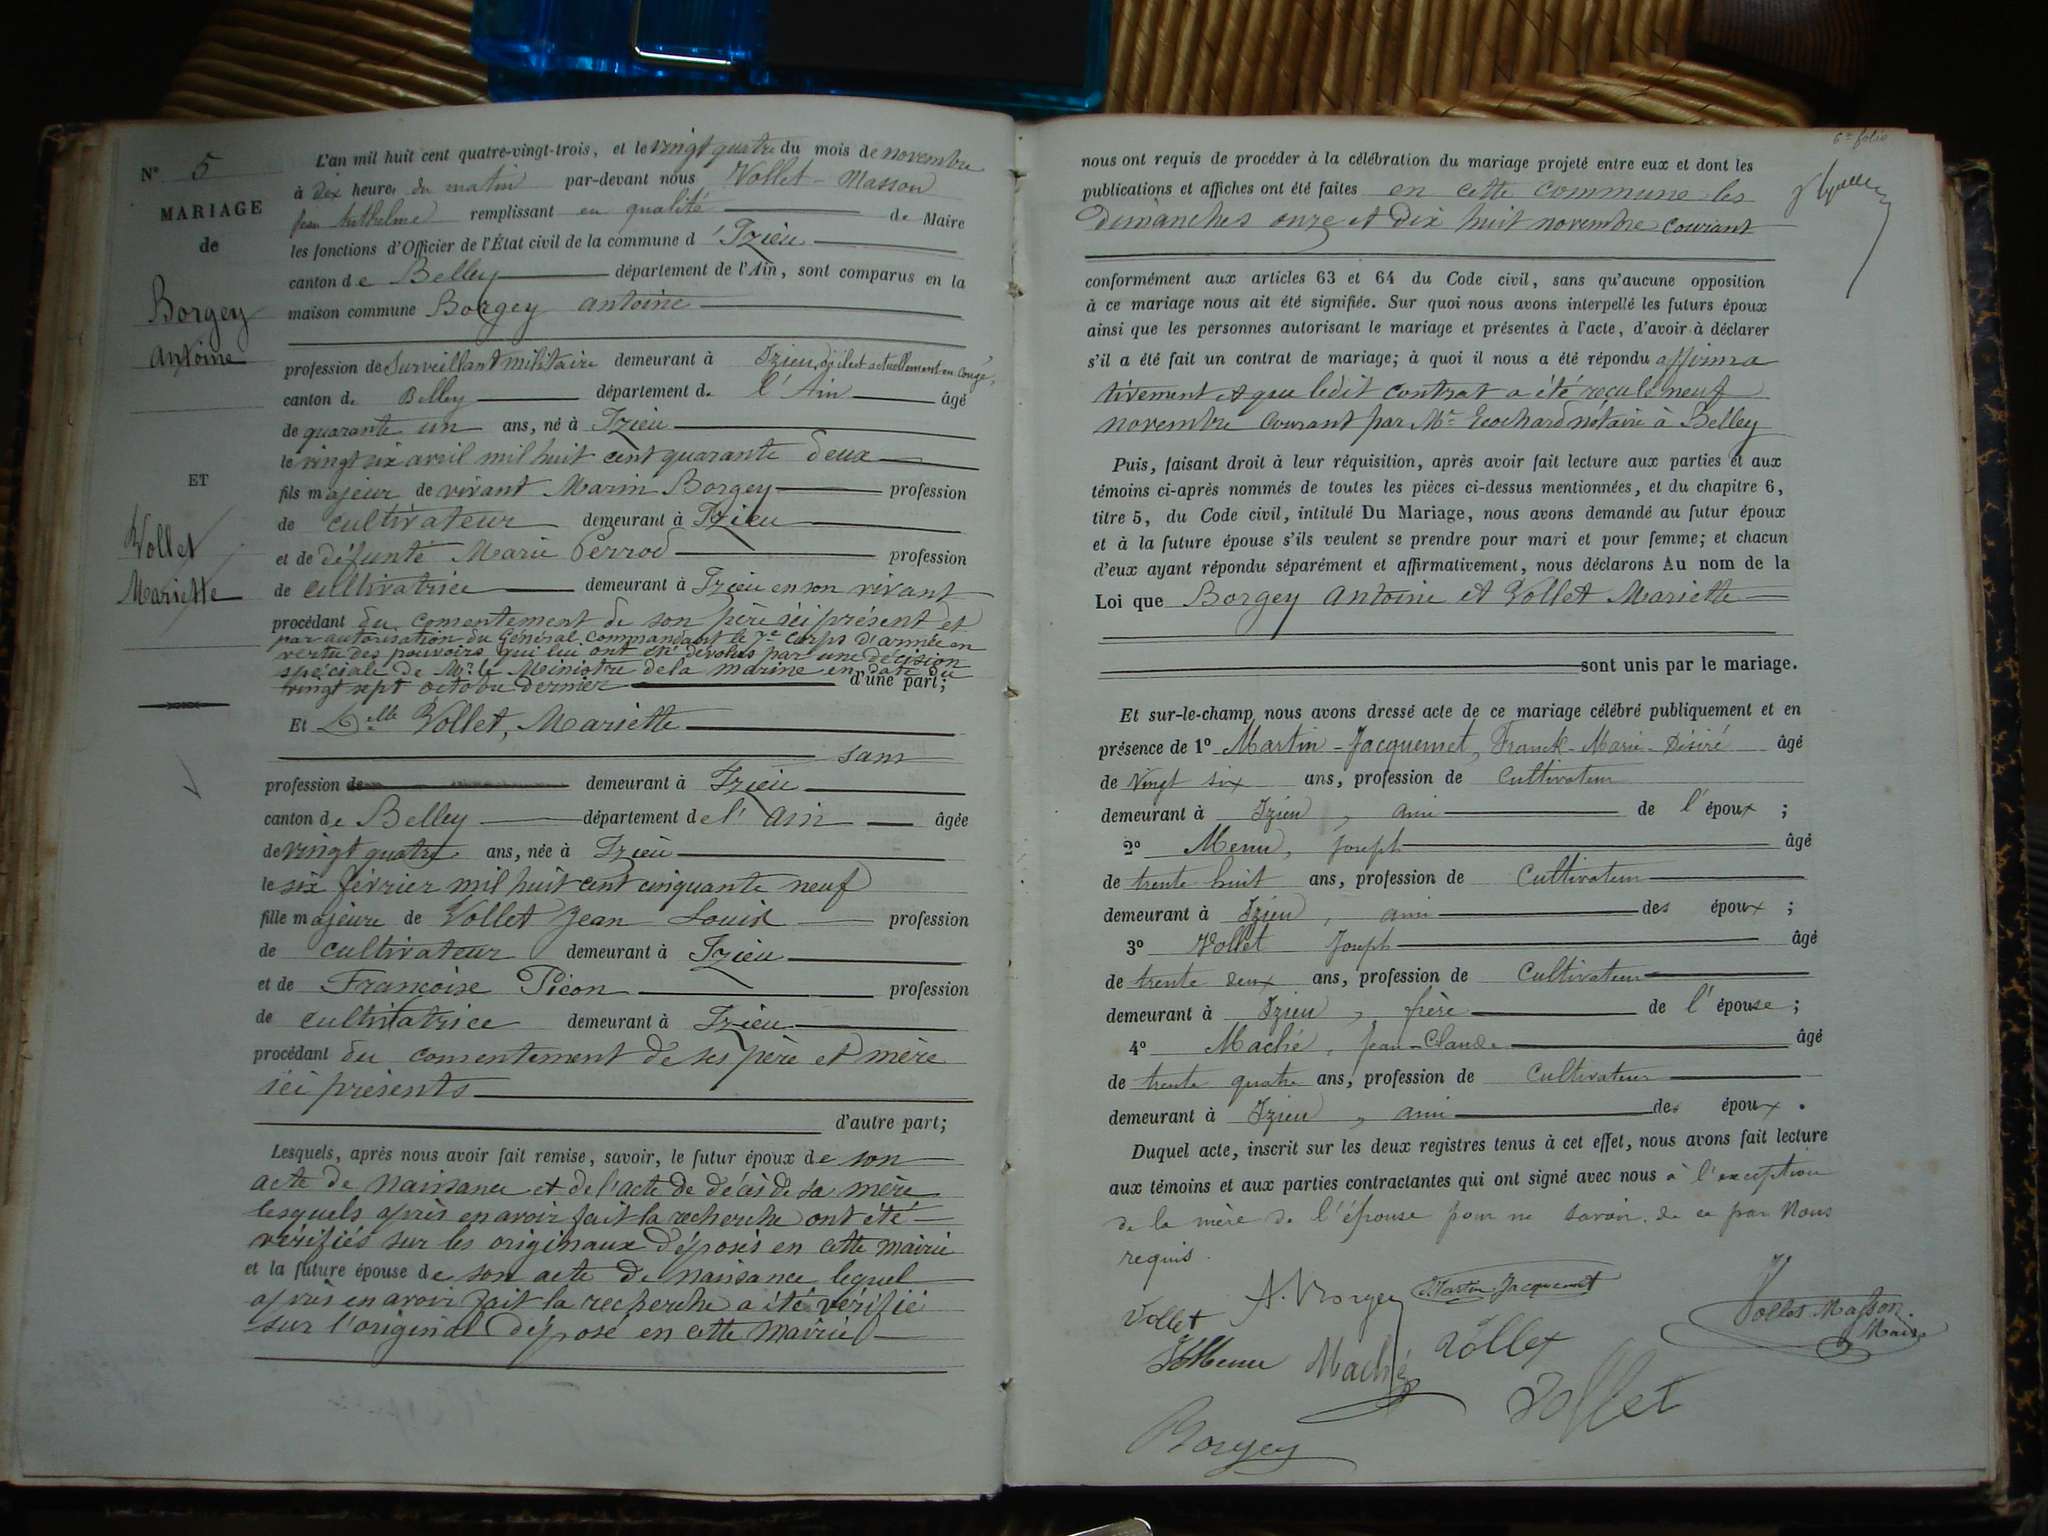 N° 5
MARIAGE
de
Borgey
Antoine
ET
Vollet
Mariette
L'an mil huit cent quatre-vingt-trois, et le vingt quatre du mois de novembre
à dix heures du matin par-devant nous Vollet-Masson
Jean Anthelme remplissant en qualité de Maire
les fonctions d'Officier de l'État civil de la commune d'Izieu
canton de Belley département de l'Ain, sont comparus en la
maison commune Borgey Antoine
profession de Surveillant militaire demeurant à Izieu, où il est actuellement en congé,
canton de Belley département de l'Ain âgé
de quarante un ans, né à Izieu
le vingt six avril mil huit cent quarante deux
fils majeur de vivant Marin Borgey profession
de cultivateur demeurant à Izieu
et de défunte Marie Perrod profession
de cultivatrice demeurant à Izieu en son vivant
procédant du consentement de son père ici présent et
par autorisation du Général commandant le 7e Corps d'armée en
vertu des pouvoirs qui lui ont été dévolus par une décision
spéciale de Mr le Ministre de la marine en date du
vingt sept octobre dernier d'une part;
Et Delle Vollet, Mariette
sans
profession de demeurant à Izieu
canton de Belley département de l'Ain âgée
de vingt quatre ans, née à Izieu
le six février mil huit cent cinquante neuf
fille majeure de Vollet Jean Louis profession
de cultivateur demeurant à Izieu
et de Françoise Picon profession
de cultivatrice demeurant à Izieu
procédant du consentement de ses père et mère
ici présents
d'autre part;
Lesquels, après nous avoir fait remise, savoir, le futur époux de son
acte de naissance et de l'acte de décès de sa mère
lesquels après en avoir fait la recherche ont été
vérifiés sur les originaux déposés en cette mairie
et la future épouse de son acte de naissance lequel
après en avoir fait la recherche a été vérifié
sur l'original déposé en cette mairie
6e folio
nous ont requis de procéder à la célébration du mariage projeté entre eux et dont les
publications et affiches ont été faites en cette commune les
dimanches onze et dix huit novembre courant
conformément aux articles 63 et 64 du Code civil, sans qu'aucune opposition
à ce mariage nous ait été signifiée. Sur quoi nous avons interpellé les futurs époux
ainsi que les personnes autorisant le mariage et présentes à l'acte, d'avoir à déclarer
s'il a été fait un contrat de mariage; à quoi il nous a été répondu affirma
tivement et que ledit contrat a été reçu le neuf
novembre courant par Me Ecochard notaire à Belley
Puis, faisant droit à leur réquisition, après avoir fait lecture aux parties et aux
témoins ci-après nommés de toutes les pièces ci-dessus mentionnées, et du chapitre 6,
titre 5, du Code civil, intitulé Du Mariage, nous avons demandé au futur époux
et à la future épouse s'ils veulent se prendre pour mari et pour femme; et chacun
d'eux ayant répondu séparément et affirmativement, nous déclarons Au nom de la
Loi que Borgey Antoine et Vollet Mariette
sont unis par le mariage.
Et sur-le-champ nous avons dressé acte de ce mariage célébré publiquement et en
présence de 1° Martin-Jacquemet, Franck-Marie-Désiré âgé
de vingt six ans, profession de cultivateur
demeurant à Izieu, ami de l'époux;
2° Menu, Joseph âgé
de trente huit ans, profession de cultivateur
demeurant à Izieu, ami des époux;
3° Vollet Joseph âgé
de trente deux ans, profession de cultivateur
demeurant à Izieu, frère de l'épouse;
4° Maché, Jean-Claude âgé
de trente quatre ans, profession de cultivateur
demeurant à Izieu, ami des époux.
Duquel acte, inscrit sur les deux registres tenus à cet effet, nous avons fait lecture
aux témoins et aux parties contractantes qui ont signé avec nous à l'exception
de la mère de l'épouse pour ne savoir, de ce par nous
requis.
Vollet A. Borgey Martin-Jacquemet
Vollet Masson
Maire
J Menu Maché Vollet
Vollet
Borgey